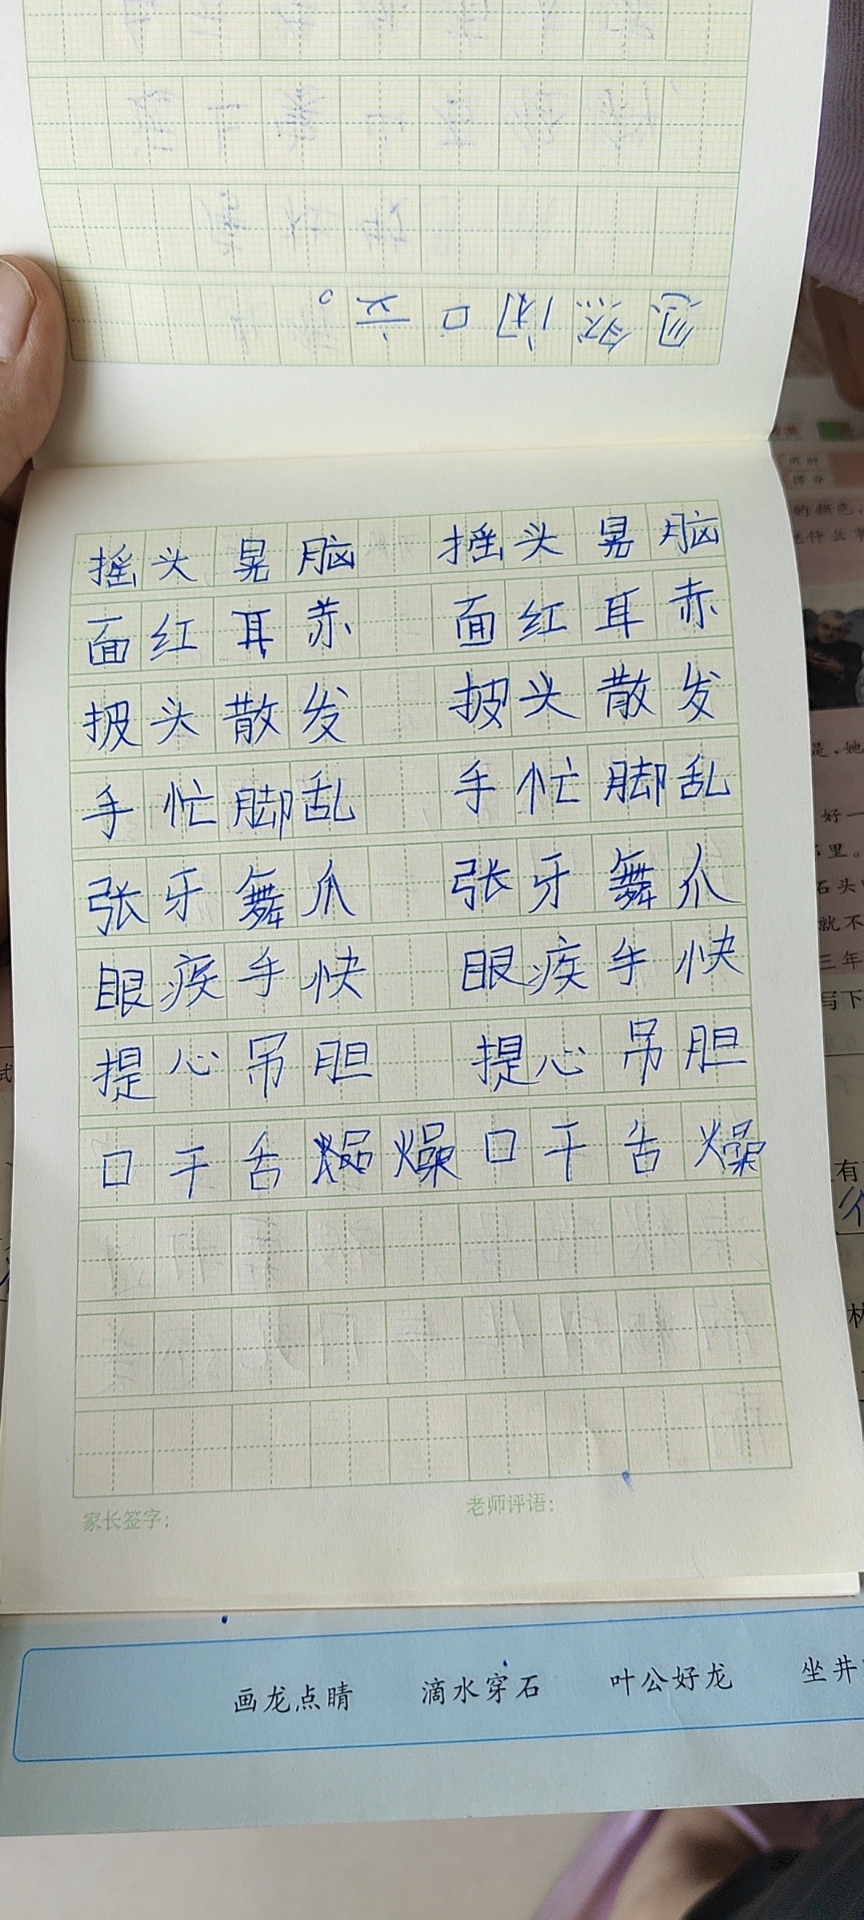 忽然闭口立。
摇头晃脑 摇头晃脑
面红耳赤 面红耳赤
披头散发 披头散发
手忙脚乱 手忙脚乱
张牙舞爪 张牙舞爪
眼疾手快 眼疾手快
提心吊胆 提心吊胆
口干舌燥口干舌燥
家长签字： 老师评语：
画龙点睛 滴水穿石 叶公好龙 坐井